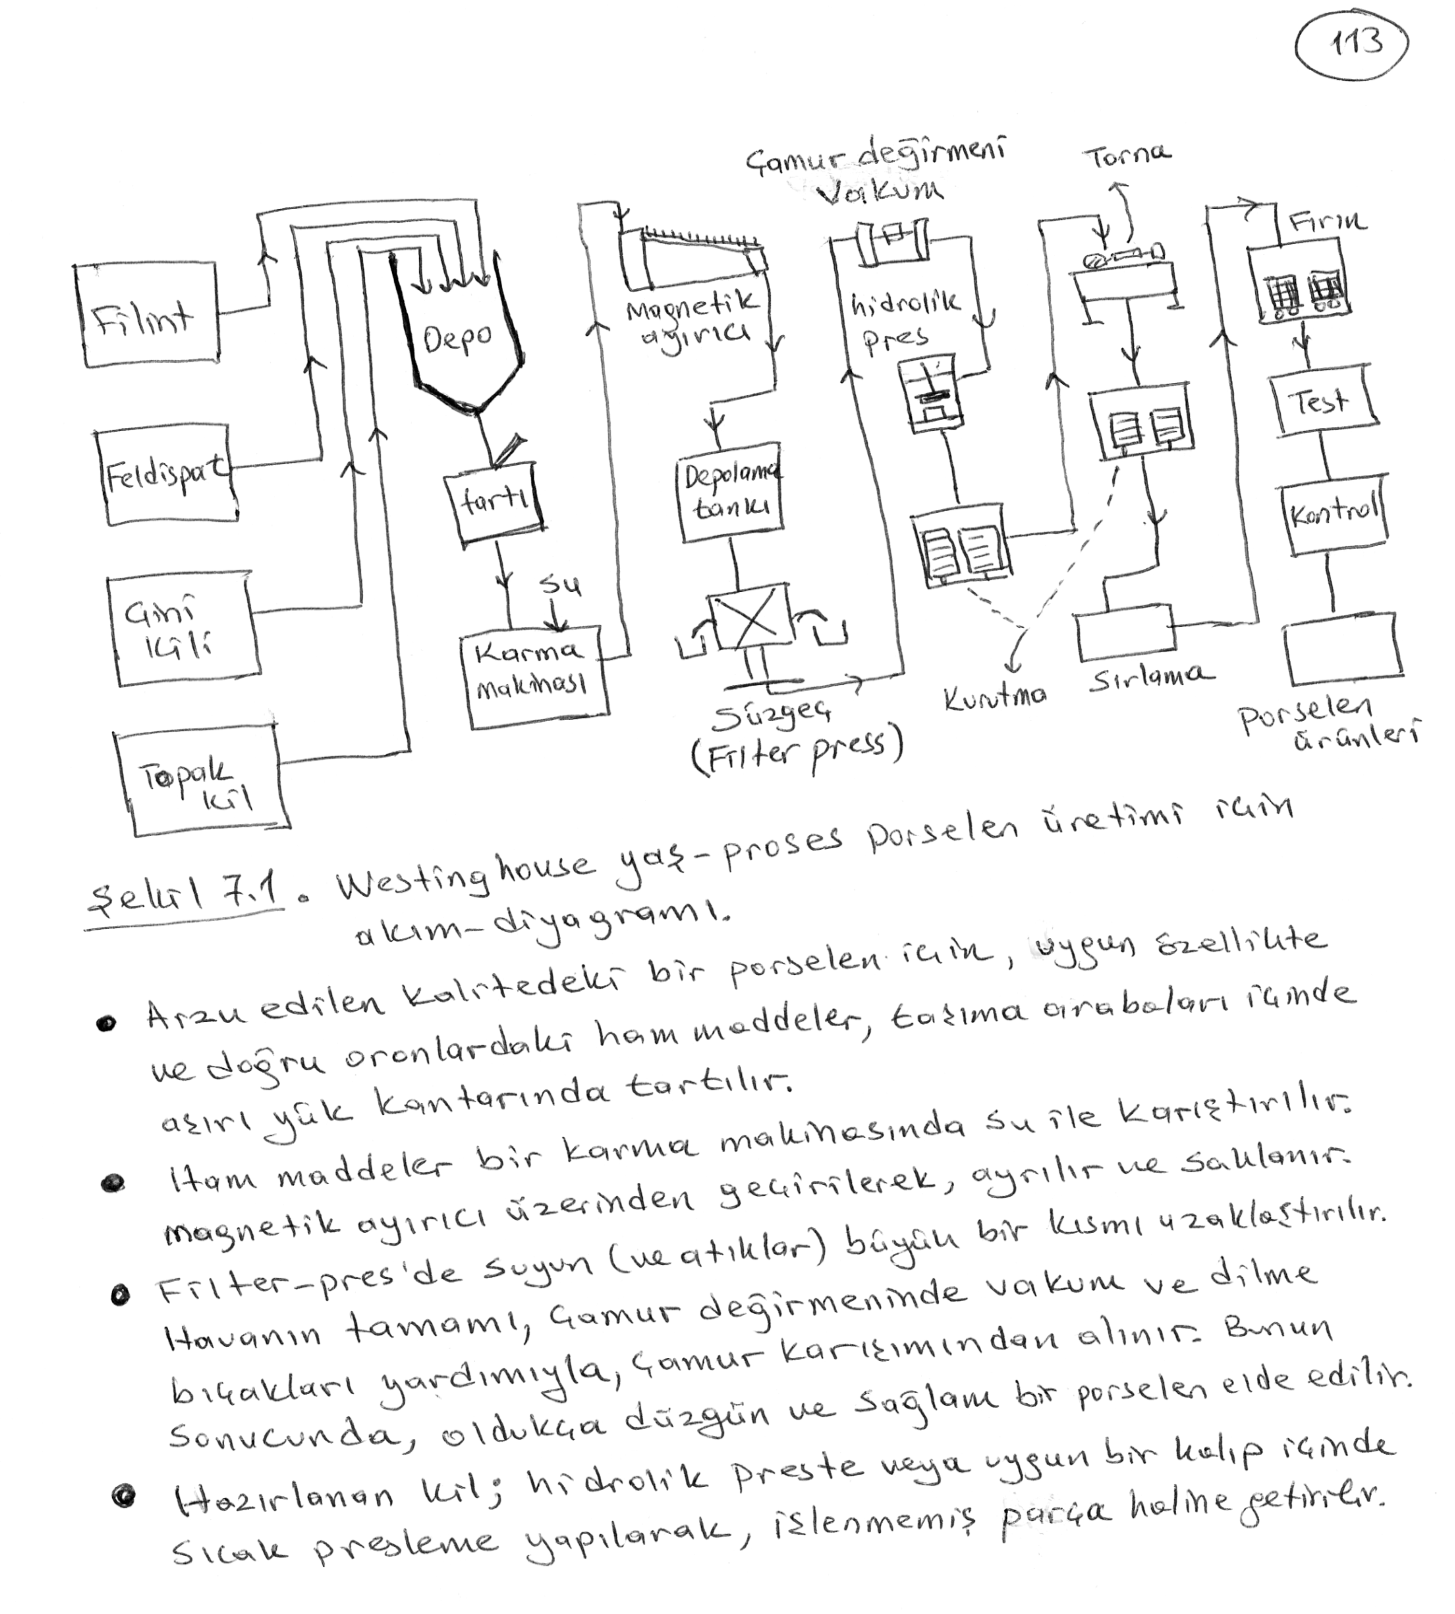 113
Çamur değirmeni
Vakum
Torna
Fırın
Filint
Depo
Magnetik
ayırıcı
hidrolik
pres
Feldispat
tartı
Depolama
tankı
Test
Kontrol
Çini
Kili
su
Karma
makinası
Süzgeç
(Filter press)
Kurutma
Sırlama
Porselen
ürünleri
Topak
Kil
Şekil 7.1. Westinghouse yaş-proses porselen üretimi için
akım-diyagramı.
• Arzu edilen kalitedeki bir porselen için, uygun özellikte
ve doğru oranlardaki ham maddeler, taşıma arabaları içinde
aşırı yük kantarında tartılır.
• Ham maddeler bir karma makinasında su ile karıştırılır.
Magnetik ayırıcı üzerinden geçirilerek, ayrılır ve saklanır.
• Filter-pres'de suyun (ve atıklar) büyük bir kısmı uzaklaştırılır.
Havanın tamamı, Çamur değirmeninde vakum ve dilme
bıçakları yardımıyla, Çamur karışımından alınır. Bunun
sonucunda, oldukça düzgün ve sağlam bir porselen elde edilir.
• Hazırlanan kil; hidrolik preste veya uygun bir kalıp içinde
sıcak presleme yapılarak, işlenmemiş parça haline getirilir.